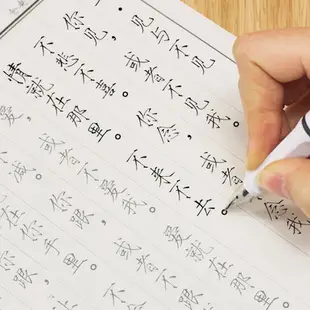 见与不见
你见,或者不见我。
不悲不喜。你念,或者念我
情就在那里。不来不去。
爱,或者不爱我。爱就在那里。
减。你跟,或者不跟
在你手里。不
跟,